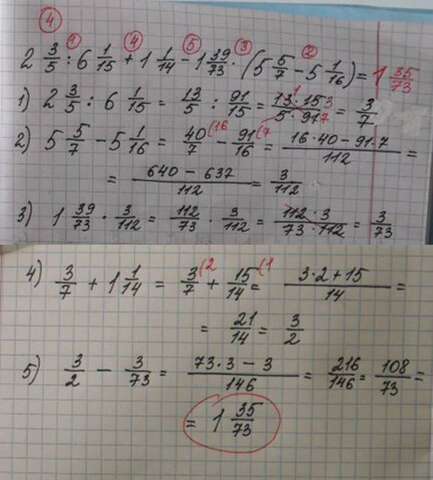 ④
① ④ ⑤ ③ ②
2 3/5 : 6 1/15 + 1 1/14 - 1 39/73 · (5 5/7 - 5 1/16) = 1 35/73
1) 2 3/5 : 6 1/15 = 13/5 : 91/15 = 13¹·15³/5·91⁷ = 3/7
2) 5 5/7 - 5 1/16 = 40/7 (16 - 91/16 (7 = 16·40-91·7/112 =
= 640-637/112 = 3/112
3) 1 39/73 · 3/112 = 112/73 · 3/112 = 112·3/73·112 = 3/73
4) 3/7 + 1 1/14 = 3/7 (2 + 15/14 (1 = 3·2+15/14 =
= 21/14 = 3/2
5) 3/2 - 3/73 = 73·3-3/146 = 216/146 = 108/73 =
= 1 35/73